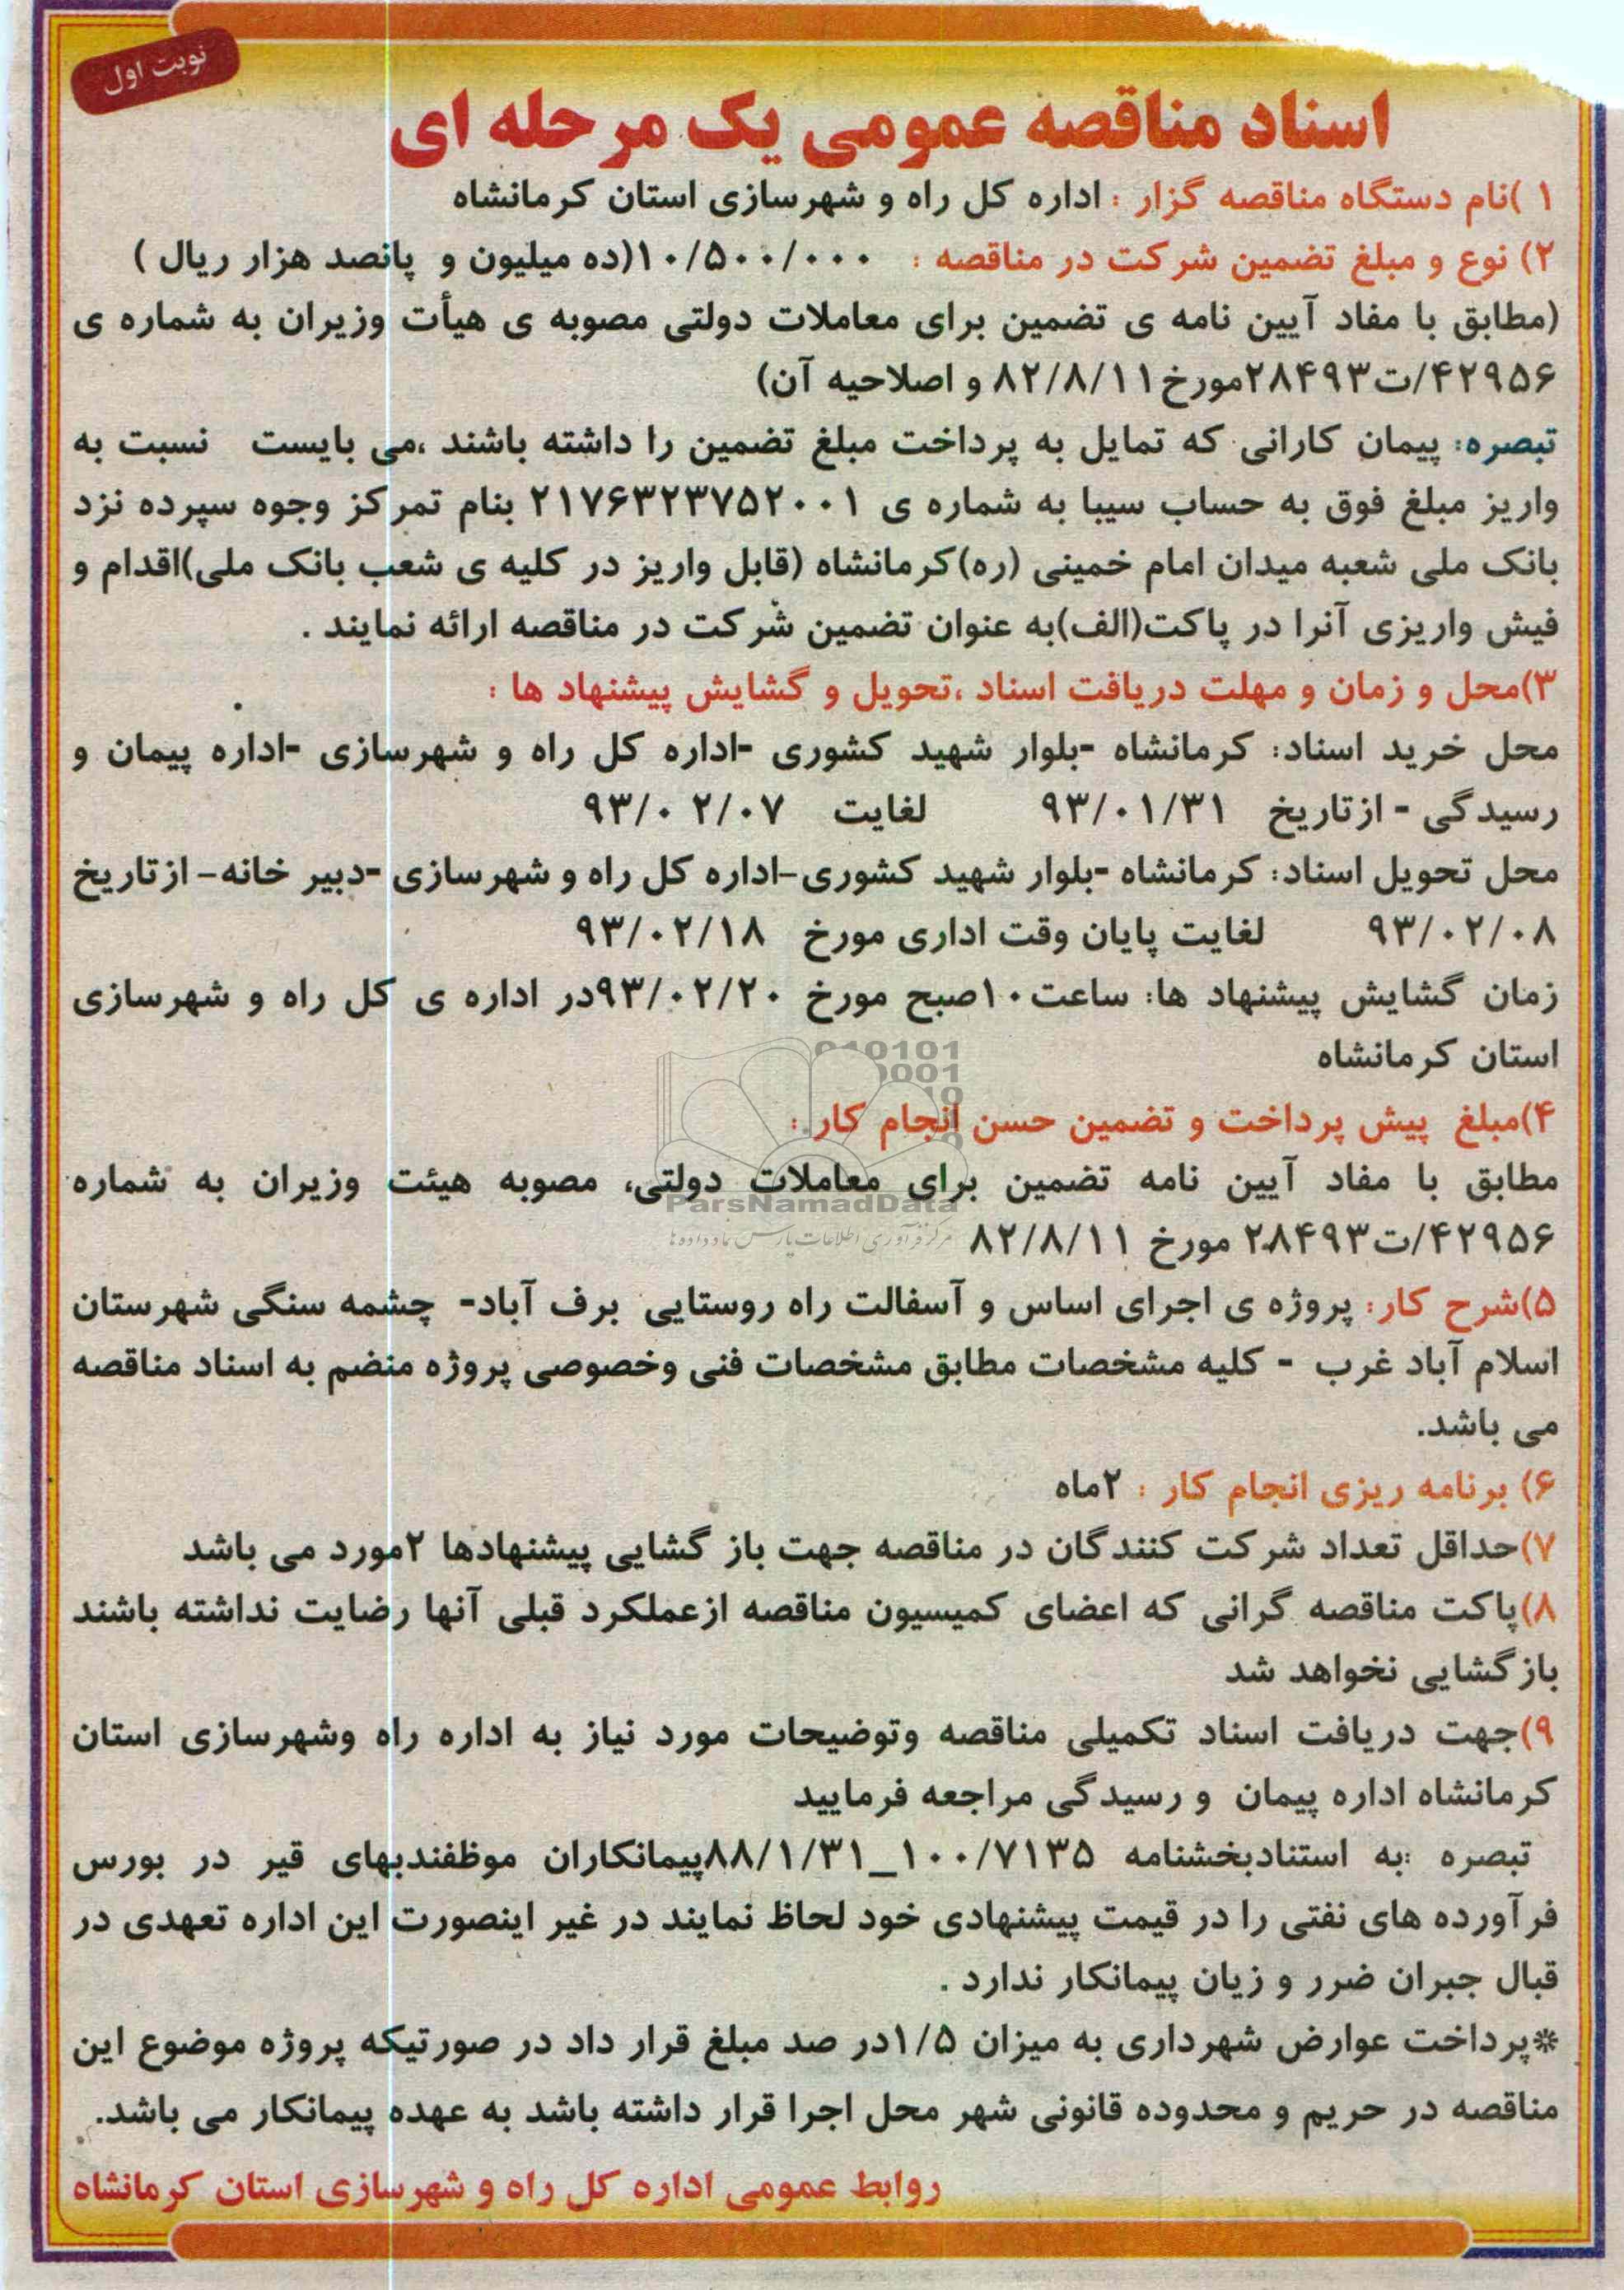 نوبت اول
اسناد مناقصه عمومی یک مرحله ای
۱ )نام دستگاه مناقصه گزار : اداره کل راه و شهرسازی استان کرمانشاه
۲) نوع و مبلغ تضمین شرکت در مناقصه : ۱۰/۵۰۰/۰۰۰(ده میلیون و پانصد هزار ریال )
(مطابق با مفاد آیین نامه ی تضمین برای معاملات دولتی مصوبه ی هیأت وزیران به شماره ی
۴۲۹۵۶/ت۲۸۴۹۳مورخ۸۲/۸/۱۱ و اصلاحیه آن)
تبصره: پیمان کارانی که تمایل به پرداخت مبلغ تضمین را داشته باشند ،می بایست نسبت به
واریز مبلغ فوق به حساب سیبا به شماره ی ۲۱۷۶۳۲۳۷۵۲۰۰۱ بنام تمرکز وجوه سپرده نزد
بانک ملی شعبه میدان امام خمینی (ره)کرمانشاه (قابل واریز در کلیه ی شعب بانک ملی)اقدام و
فیش واریزی آنرا در پاکت(الف)به عنوان تضمین شرکت در مناقصه ارائه نمایند .
۳)محل و زمان و مهلت دریافت اسناد ،تحویل و گشایش پیشنهاد ها :
محل خرید اسناد: کرمانشاه -بلوار شهید کشوری -اداره کل راه و شهرسازی -اداره پیمان و
رسیدگی - ازتاریخ ۹۳/۰۱/۳۱ لغایت ۹۳/۰۲/۰۷
محل تحویل اسناد: کرمانشاه -بلوار شهید کشوری-اداره کل راه و شهرسازی -دبیر خانه- ازتاریخ
۹۳/۰۲/۰۸ لغایت پایان وقت اداری مورخ ۹۳/۰۲/۱۸
زمان گشایش پیشنهاد ها: ساعت۱۰صبح مورخ ۹۳/۰۲/۲۰در اداره ی کل راه و شهرسازی
استان کرمانشاه
۴)مبلغ پیش پرداخت و تضمین حسن انجام کار :
مطابق با مفاد آیین نامه تضمین برای معاملات دولتی، مصوبه هیئت وزیران به شماره
ParsNamadData
مرکز فرآوری اطلاعات پارس نماد داده ها
۴۲۹۵۶/ت۲۸۴۹۳ مورخ ۸۲/۸/۱۱
۵)شرح کار: پروژه ی اجرای اساس و آسفالت راه روستایی برف آباد- چشمه سنگی شهرستان
اسلام آباد غرب - کلیه مشخصات مطابق مشخصات فنی وخصوصی پروژه منضم به اسناد مناقصه
می باشد.
۶) برنامه ریزی انجام کار : ۲ماه
۷)حداقل تعداد شرکت کنندگان در مناقصه جهت باز گشایی پیشنهادها ۲مورد می باشد
۸)پاکت مناقصه گرانی که اعضای کمیسیون مناقصه ازعملکرد قبلی آنها رضایت نداشته باشند
بازگشایی نخواهد شد
۹)جهت دریافت اسناد تکمیلی مناقصه وتوضیحات مورد نیاز به اداره راه وشهرسازی استان
کرمانشاه اداره پیمان و رسیدگی مراجعه فرمایید
تبصره :به استنادبخشنامه ۱۰۰/۷۱۳۵_۸۸/۱/۳۱پیمانکاران موظفندبهای قیر در بورس
فرآورده های نفتی را در قیمت پیشنهادی خود لحاظ نمایند در غیر اینصورت این اداره تعهدی در
قبال جبران ضرر و زیان پیمانکار ندارد .
*پرداخت عوارض شهرداری به میزان ۱/۵در صد مبلغ قرار داد در صورتیکه پروژه موضوع این
مناقصه در حریم و محدوده قانونی شهر محل اجرا قرار داشته باشد به عهده پیمانکار می باشد.
روابط عمومی اداره کل راه و شهرسازی استان کرمانشاه